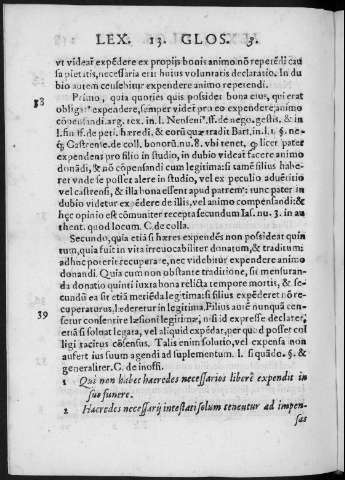 LEX. 13. GLOS. 3.
vt videat̃ expẽdere ex proprijs bonis animo nõ repetẽdi cau
sa pietatis, necessaria erit huius voluntatis declaratio. In du
bio autem censebitur expendere animo repetendi.
38 Primo, quia quories quis possidet bona eius, qui erat
obligat⁹ expendere, semper videt̃ pro eo expendere, animo
cõpensandi. arg. tex. in l. Nensenī. ff. de nego. gestis, & in
l. fin. ff. de peti. hæredi. & eorũ quæ tradit Bart. in l. 1. §. ne-
q; Castrense. de coll. bonorũ. nu. 8. vbi tenet, q̃ licet pater
expendens pro filio in studio, in dubio videat̃ facere animo
donãdi, & nõ cõpensandi cum legitima: si tamẽ filius habe
ret vnde se posset alere in studio, vel ex peculio aduẽtitio
vel castrensi, & illa bona essent apud patrem: tunc pater in
dubio videtur expẽdere de illis, vel animo compensandi: &
hęc opinio est cõmuniter recepta secundum Ias. nu. 3. in au
thent. quod locum. C. de colla.
Secundo, quia etiã si hæres expendẽs non possideat quin
tum, quia fuit in vita irreuocabiliter donatum, & traditum:
adhuc poterit recuperare, nec videbitur expendere animo
donandi. Quia cum non obstante traditione, sit mensuran-
da donatio quinti iuxta bona relicta tempore mortis, & se-
cundũ ea sit etiã metiẽda legitima: si filius expẽderet nõ re-
39 cuperaturus, læderetur in legitima. Filius autẽ nunquã cen-
setur consentire læsioni legitimæ, nisi id expresse declaret,
etiã si soluat legata, vel aliquid expẽdat, per quod posset col
ligi tacitus cõsensus. Talis enim solutio, vel expensa non
aufert ius suum agendi ad suplementum. l. si quãdo. §. &
generaliter. C. de inoffi.
1 Qui non habet haeredes necessarios liberè expendit in
suo funere.
2 Haeredes necessarij intestati solum tenentur ad impen-
sas